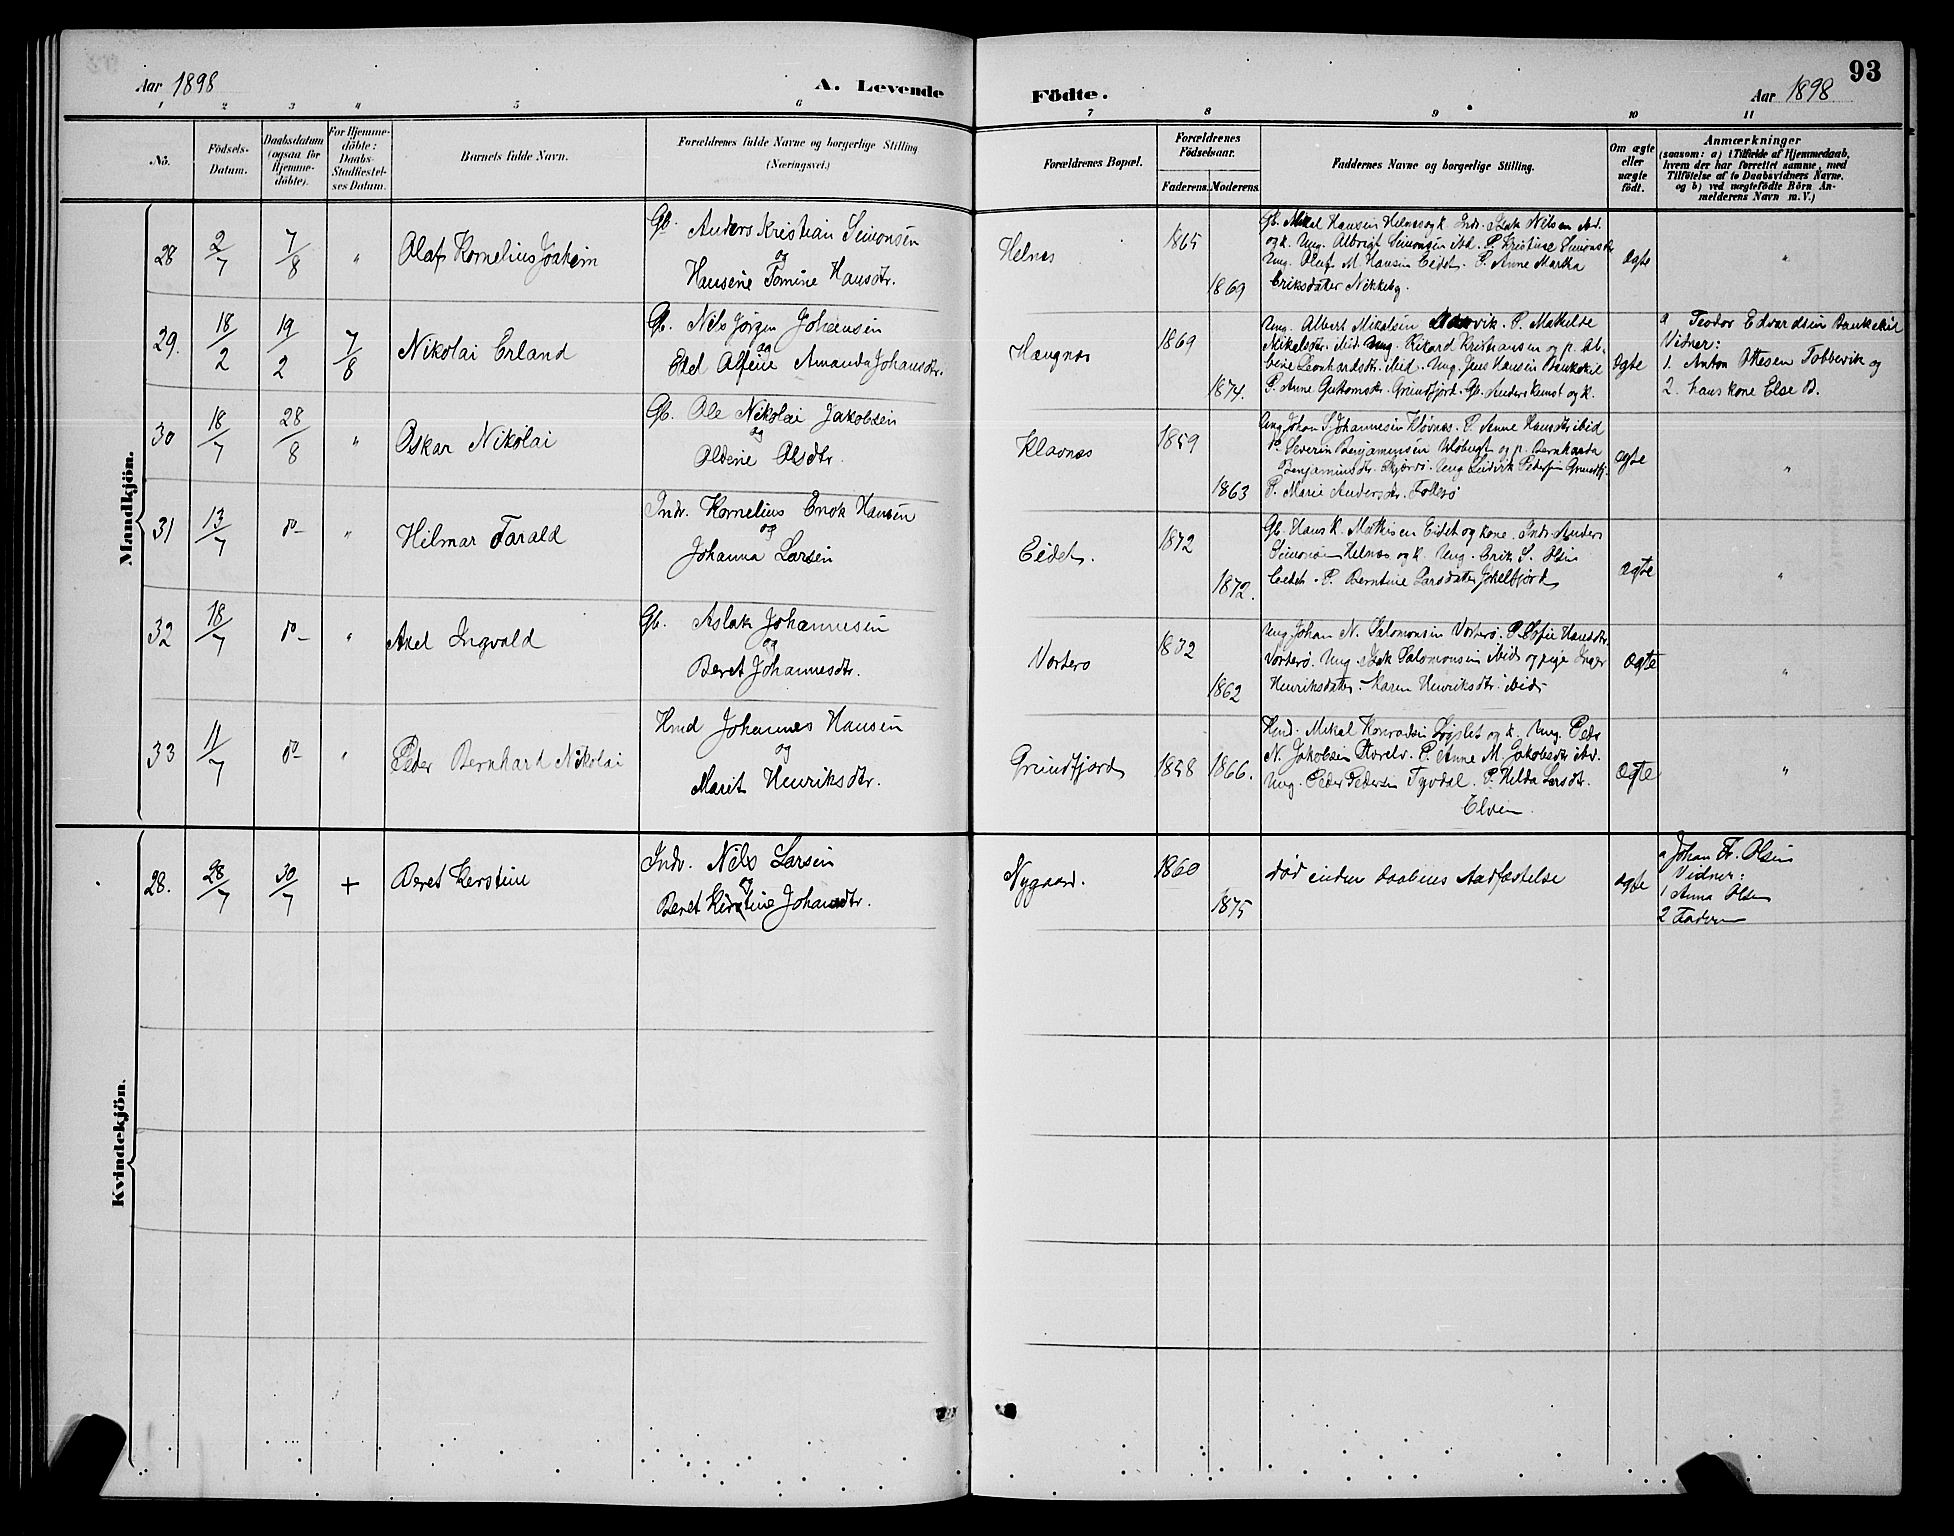 93
Aar 1898
A. Levende Födte.
Aar 1898
1 2 3 4 5 6 7 8 9 10 11
No.
Födsels-Datum.
Daabsdatum (ogsaa for Hjemme-döbte).
For Hjemme-döbte: Daabs-Stadfæstel-ses Datum.
Barnets fulde Navn.
Forældrenes fulde Navne og borgerlige Stilling (Næringsvei.)
Forældrenes Bopæl.
Forældrenes Födselsaar.
Faderens. Moderens.
Faddernes Navne og borgerlige Stilling.
Om ægte eller uægte födt.
Anmærkninger
(saasom: a) i Tilfælde af Hjemmedaab,
hvem der har forrettet samme, med
Tilföielse af to Daabsvidners Navne,
og b) ved uægtefödte Börn An-
melderens Navn m. V.)
Mandkjön.
28 2/7 7/8 " Olaf Kornelius Joakim
Gb. Anders Kristian Simonsen
og
Hansine Tomine Hansdtr.
Helnæs 1865 1869
Gb. Mikal Hansen Helnæs og k. Indr. Isak Nilsen ibd.
og k. Ung. Albrigt Simonsen ibd. P. Kristine Simonsdtr
Ung. Oluf M. Hansen Eidet. P. Anne Martha
Eriksdatter Nikkeby.
Ægte "
29. 18/2 19/2 7/8 Nikolai Erland
Gb. Nils Jørgen Johansen
og
Alfine Amanda Johansdtr.
Haugnæs 1869 1874.
Ung. Albert Mikalsen P. Mathilde
Mikelsdtr. ibid. Ung. Rikard Kristiansen og p. Al-
bine Leonhardsdtr. ibid. Ung. Jens Hansen
P. Anne Grundfjord. Gb. Anders Kunst og k.
Ægte
a Teodor Edvardsen
Vidner:
1. Anton Ottesen og
2. hans kone Else D.
30 18/7 28/8 " Oskar Nikolai
Gb. Ole Nikolai Jakobsen
og
Oldine Olsdtr.
Klavnæs 1859 1863
Ung Johan Johannesen P. Anne Hansdtr ibid
do Severin Benjaminsen og p. Bernharda
Benjaminsdtr. Ung. Ludvik Pedersen Grundfj.
P. Marie Andersdtr.
Ægte "
31 13/7 do " Hilmar Tarald
Indr. Kornelius Enok Hansen
og
Johanna Larsen
Eidet. 1872 1872.
Gb. Hans K. Mathisen Eidet og kone. Indr. Anders
Simonsen Helnæs og k. Ung. Erik S. Olsen
Eidet. P. Berntine Larsdatter Jøkelfjord
Ægte "
32 18/7 do " Axel Ingvald
Gb. Aslak Johannesen
og
Beret Johannesdtr.
Vorterø 1832 1862
Ung Johan N. Salomonsen Vorterø. P. Sofie Hansdtr.
Vorterø. Ung. Isak Salomonsen ibid og pige Inger
Henriksdatter. Karen Henriksdtr. ibid.
Ægte "
33 11/7 do " Peder Bernhard Nikolai
Hmd Johannes Hansen
og
Marit Henriksdtr.
Grundfjord 1858 1866.
Hmd. Mikal Konradsen og k. Ung. Peder
N. Jakobsen Storelv. P. Anne M. Jakobsdtr ibd.
Ung. Peder Pedersen P. Hilda Larsdtr.
Elven.
Ægte "
Kvindekjön.
28. 28/7 30/7 + Beret Kerstine
Indr. Nils Larsen
og
Beret Kerstine Johansdtr.
Nygaard. 1860 1875
død inden daabens stadfæstelse
Ægte
a Johan Fr. Olsen
Vidner:
1 Anna Olsen
2 Faderen